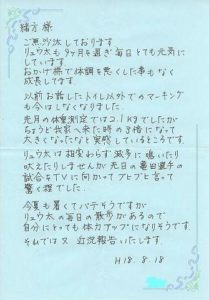 緒方様
ご無沙汰しております
リュウ太も9ヶ月を過ぎ毎日とても元気に
しています。
おかげ様で体調を悪くした事もなく
成長してます。
以前お話したトイレ以外でのマーキング
も今はしなくなりました。
先月の体重測定では2.1kgでしたが
ちょうど我家へ来た時の3倍になって
大きくなったなぁと実感しているところです。
リュウ太は相変わらず滅多に鳴いたり
吠えたりしませんが先日の亀田選手の
試合をTVに向かってブヒブヒ言って
驚く程でした。
今夏も暑くてバテそうですが
リュウ太の毎日の散歩があるので
自分にとっても体力アップになりそうです。
それでは又近況報告いたします。
H18.8.18